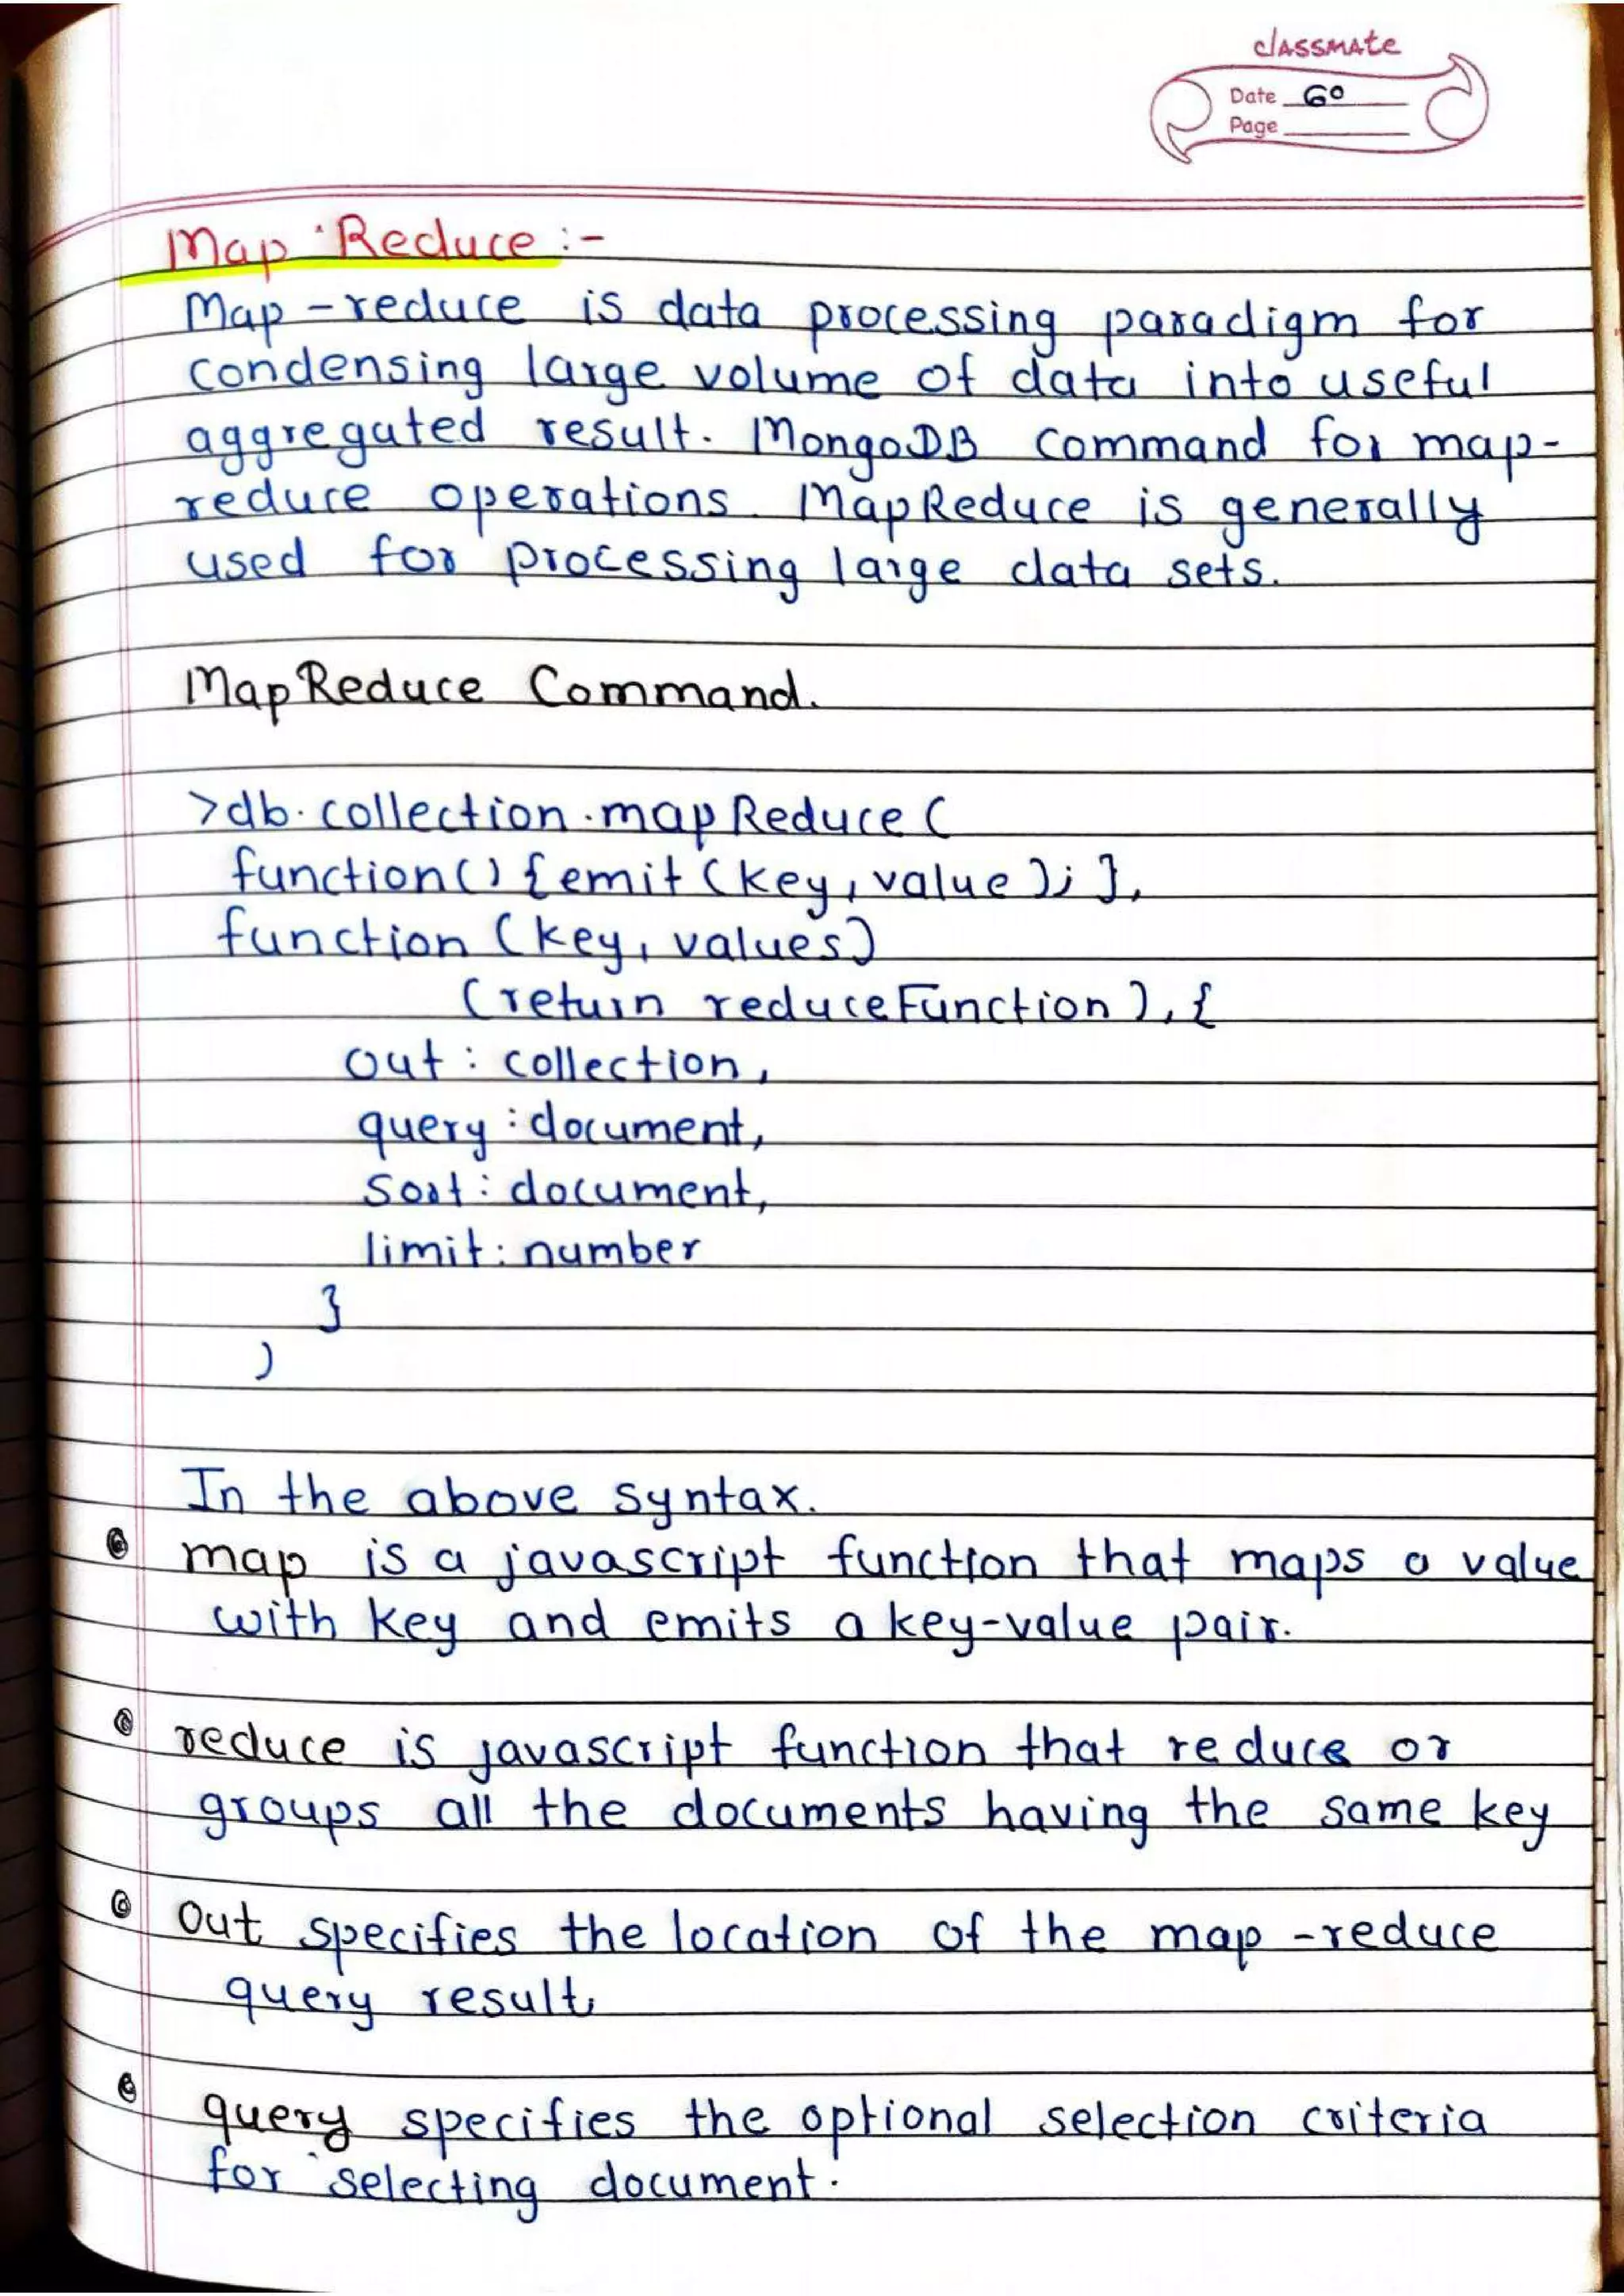 classmate
Date 60
Page
Map Reduce :-
Map-reduce is data processing paradigm for
condensing large volume of data into useful
aggregated result. MongoDB command for map-
reduce operations. MapReduce is generally
used for processing large data sets.
MapReduce Command.
>db.collection.mapReduce(
function() {emit(key, value); },
function (key, values)
(return reduceFunction), {
out : collection,
query : document,
Sort : document,
limit : number
}
)
In the above syntax.
map is a javascript function that maps a value
with key and emits a key-value pair.
reduce is javascript function that reduce or
groups all the documents having the same key
Out specifies the location of the map-reduce
query result.
query specifies the optional selection criteria
for selecting document.